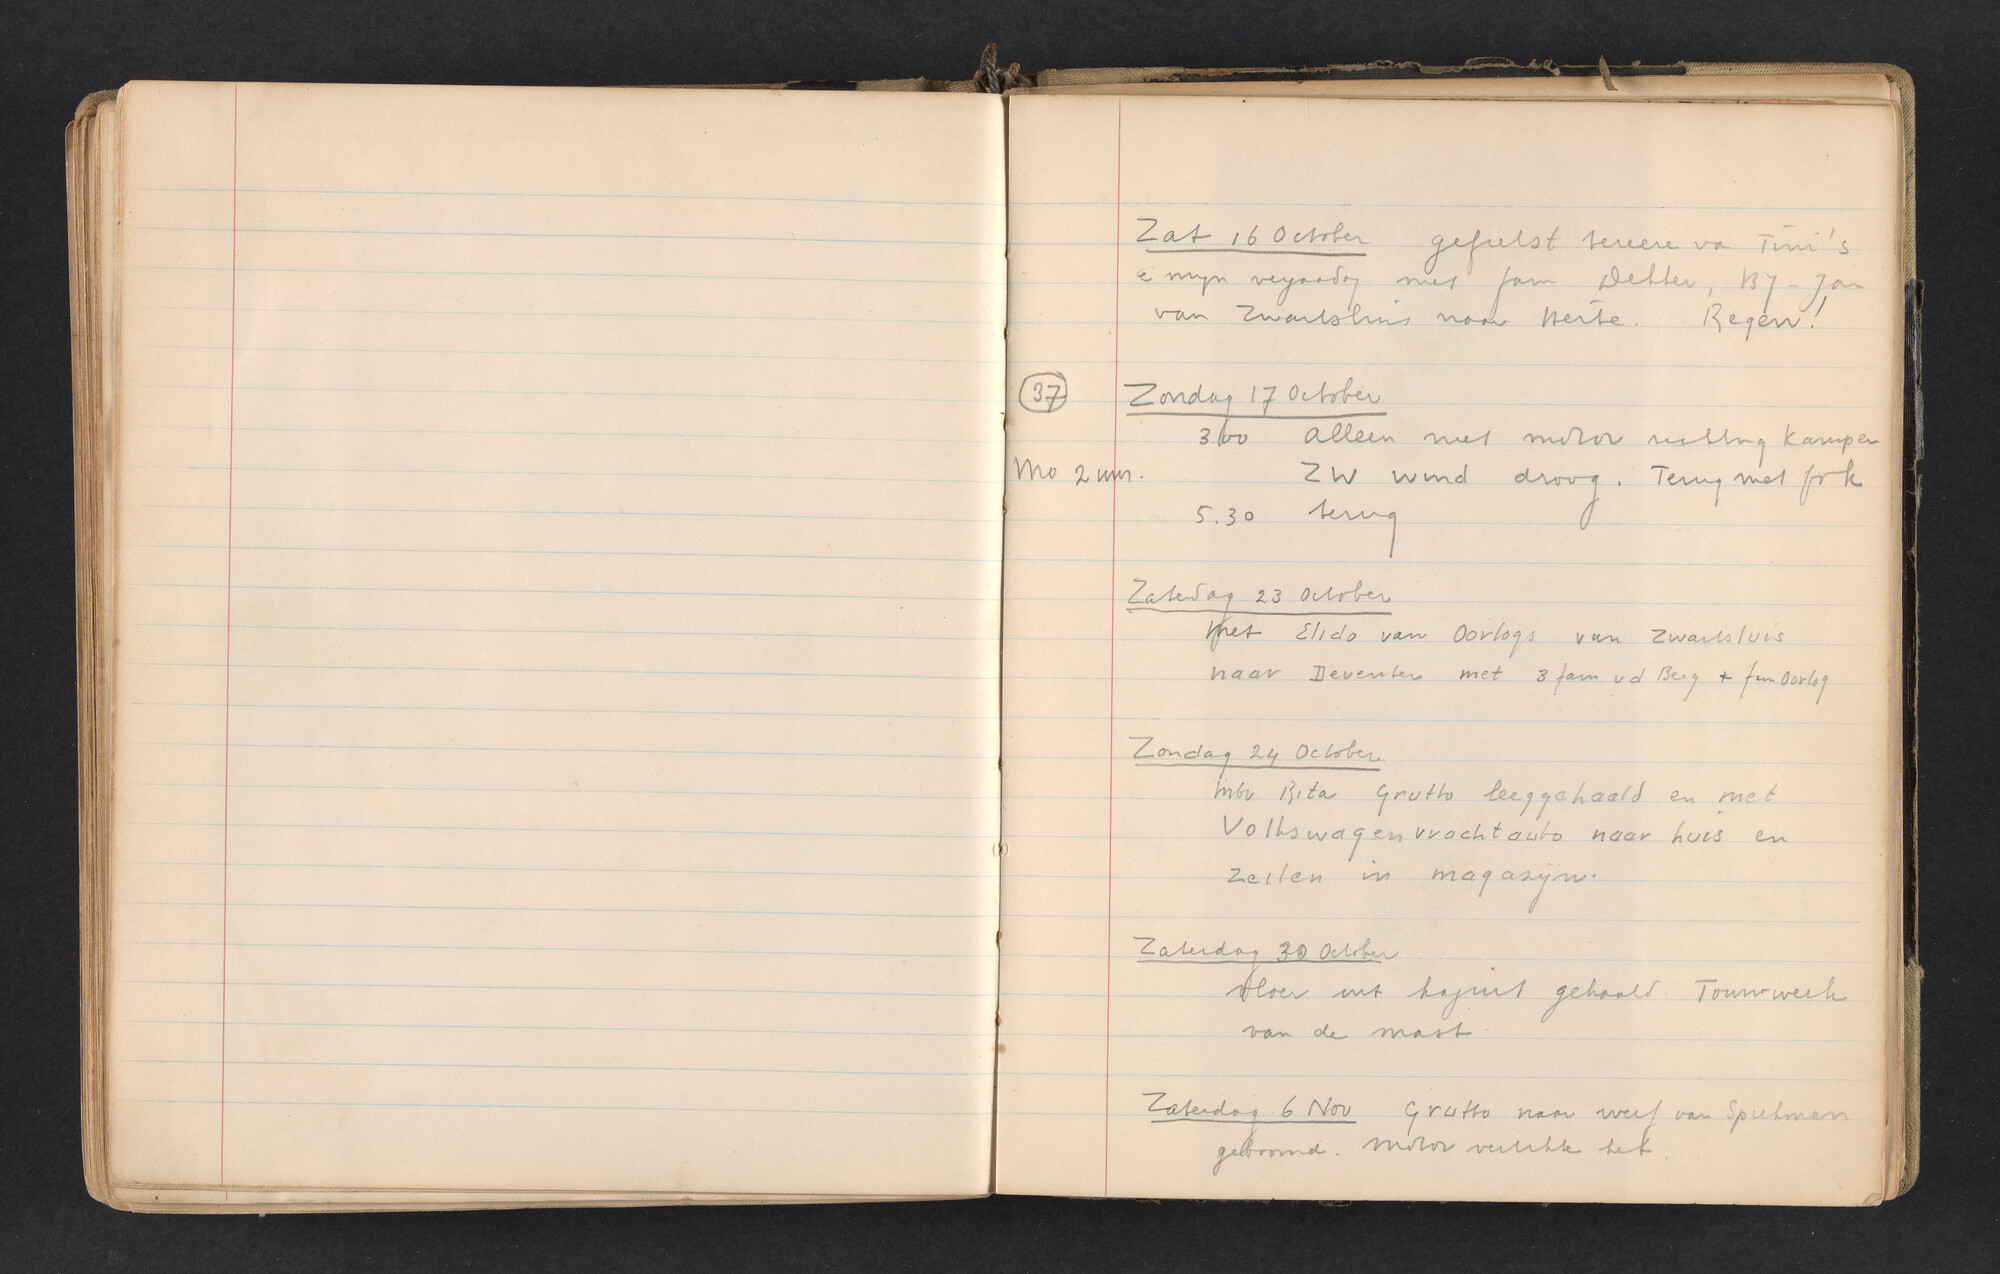 Zat 16 October gefuifd tereere va Tini's
e mijn verjaardag met fam Dekker, By - Jan
van Zwartsluis naar Herte. Regen!
37 Zondag 17 October
3.00 alleen met motor richting Kampen
Mo 2 uur. ZW wind droog. Terug met fok
5.30 terug
Zaterdag 23 October
Met Elido van Oorlogs van Zwartsluis
naar Deventer met 3 fam vd Berg + fam Oorlog
Zondag 24 October
mbv Rita Grutto leeggehaald en met
Volkswagen vrachtauto naar huis en
zeilen in magazijn.
Zaterdag 30 October
Vloer uit kajuit gehaald. Touwwerk
van de mast
Zaterdag 6 Nov Grutto naar werf van
geboomd. Motor